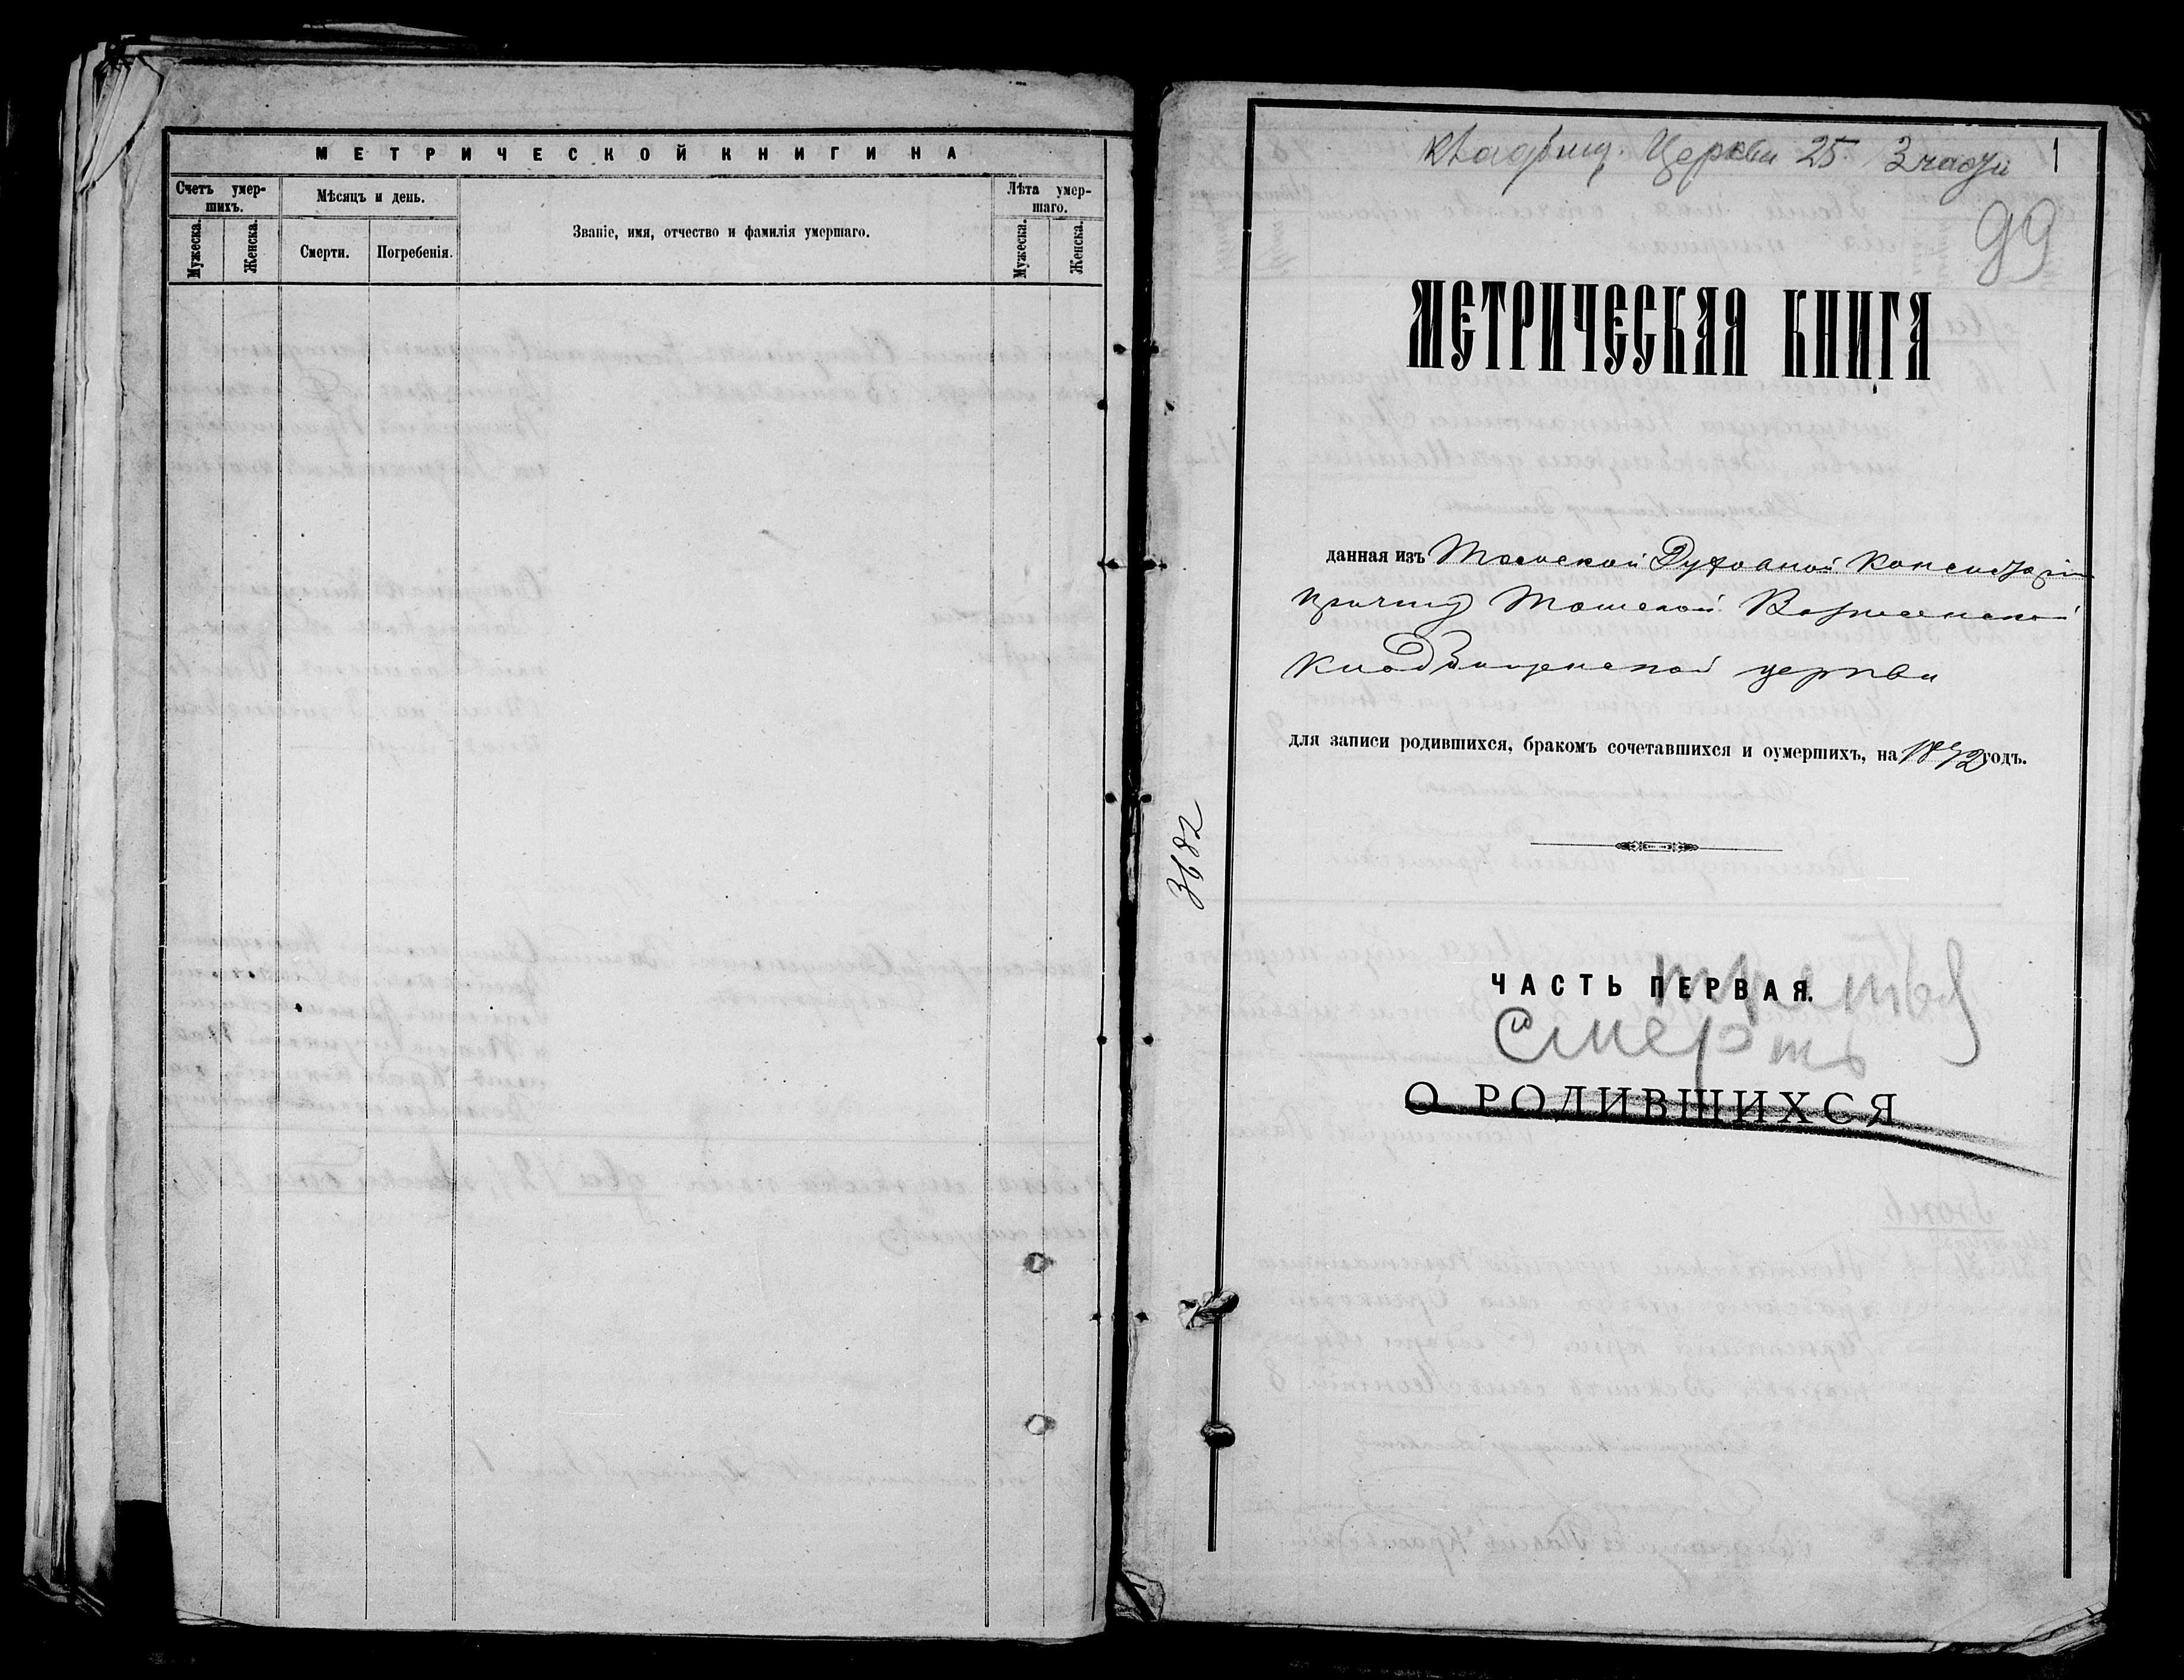 МЕТРИЧЕСКОЙ КНИГИ НА
Счетъ умер-
шихъ.
Мужеска.
Женска.
Мѣсяцъ и день.
Смерти.
Погребенія.
Званіе, имя, отчество и фамилія умершаго.
Лѣта умер-
шаго.
Мужеска.
Женска.
Кладбищ. Церкви 25. 3 части 1
99
МЕТРИЧЕСКАЯ КНИГА
данная изъ Томской Духовной Консисторіи
причту Томской Вознесенской
Кладбищенской церкви
для записи родившихся, бракомъ сочетавшихся и оумершихъ, на 1892 годъ.
3682
ЧАСТЬ ПЕРВАЯ.
третья
смерть
О РОДИВШИХСЯ